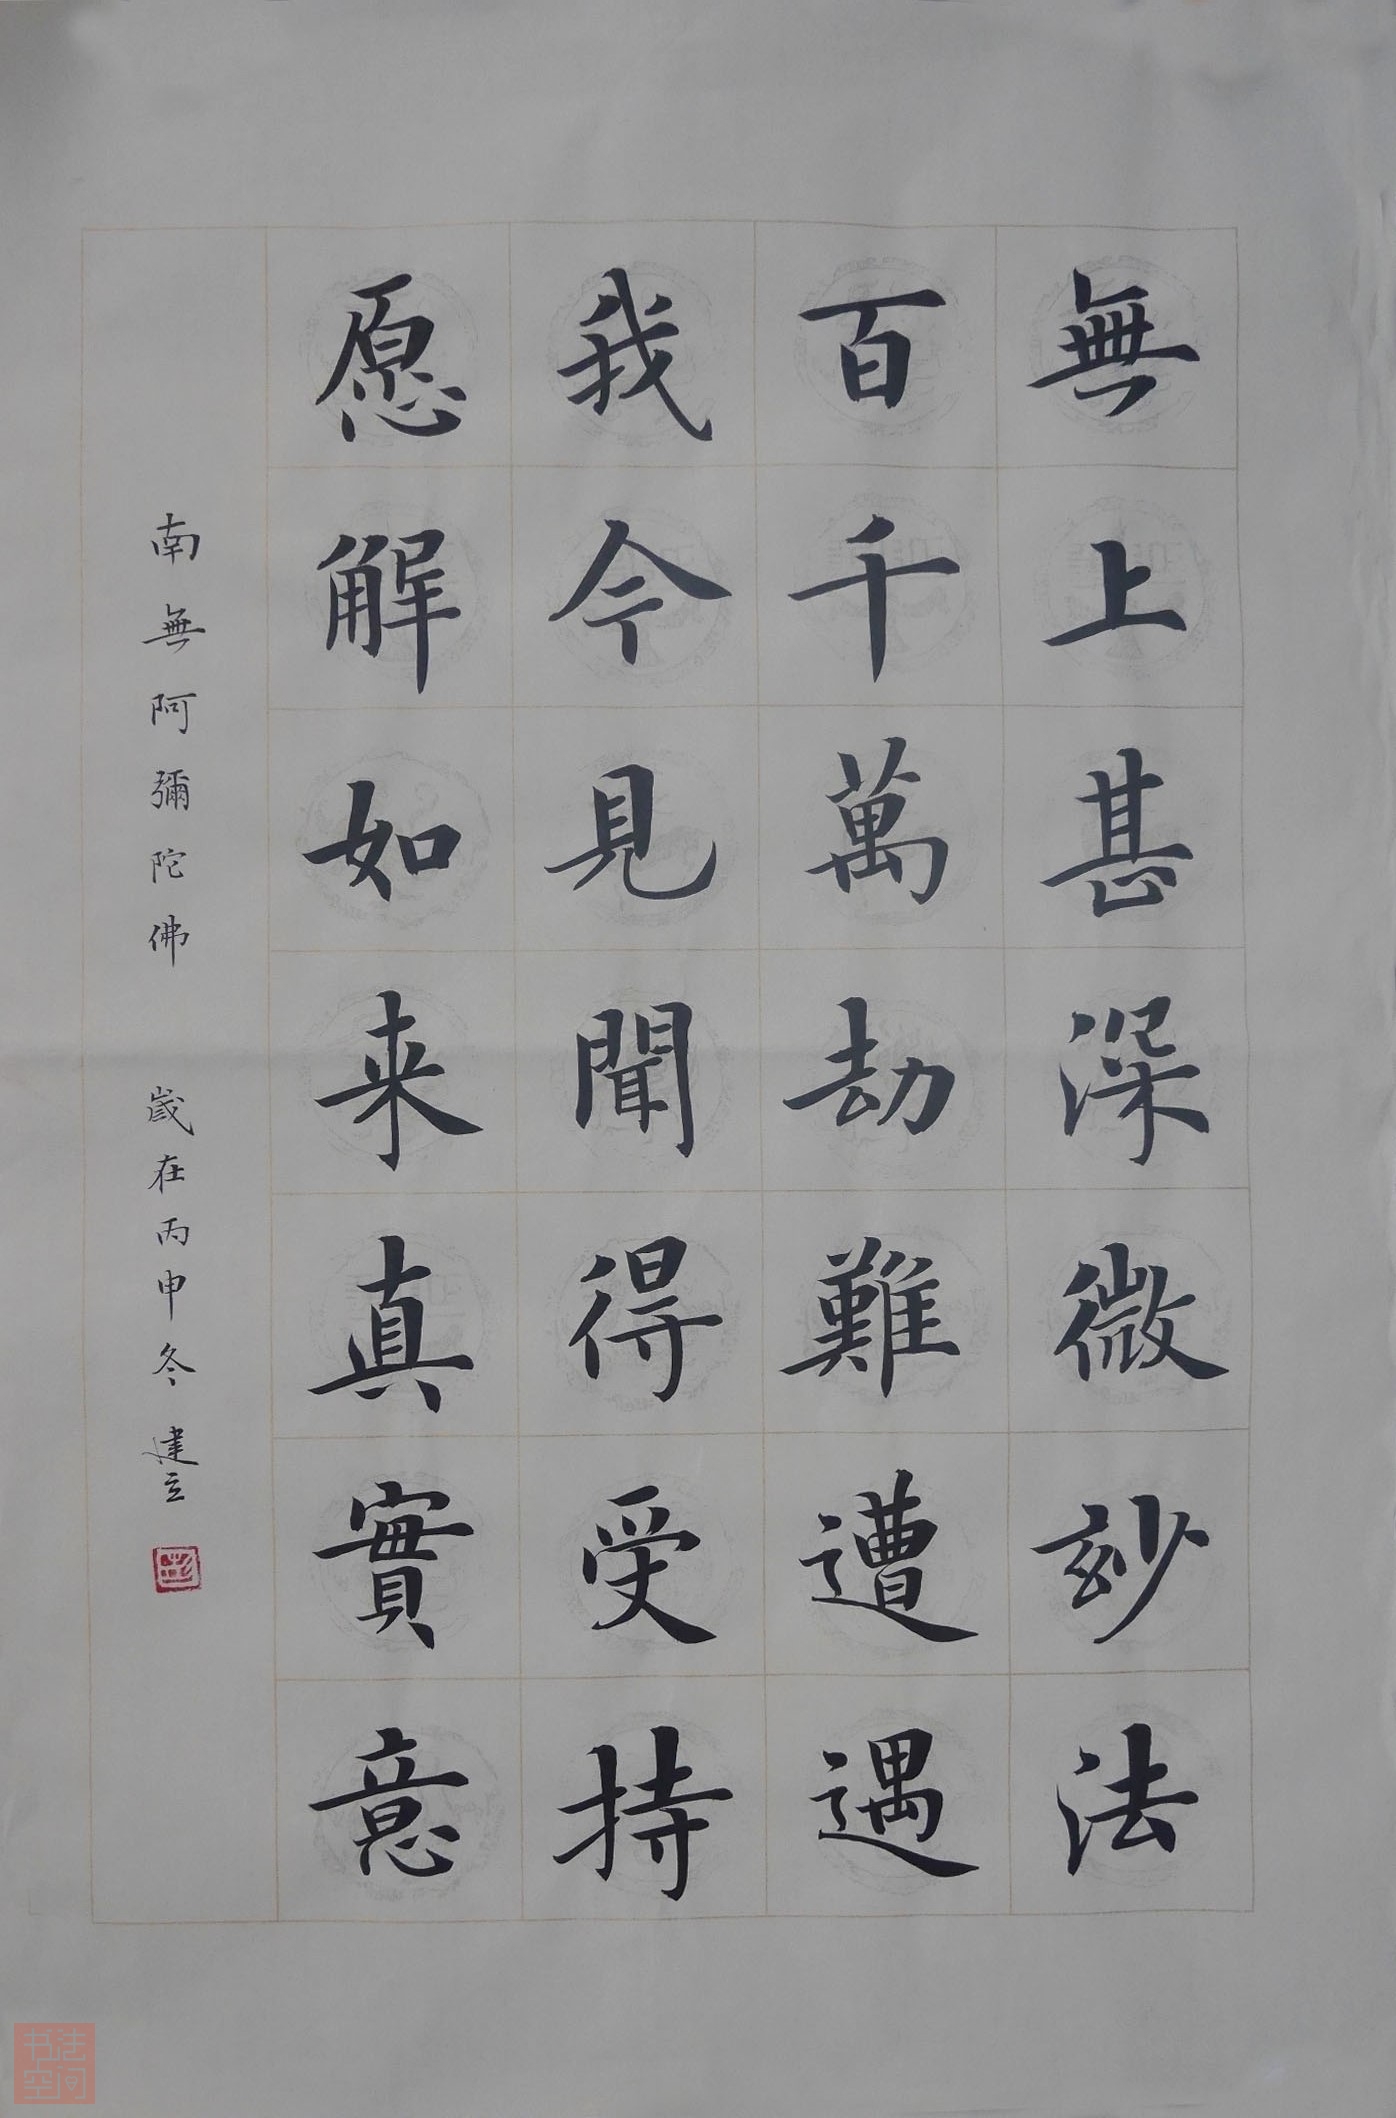 無上甚深微玅法
百千萬劫難遭遇
我今見聞得受持
愿解如来真實意
南無阿彌陀佛 歲在丙申冬 建立
书法空间